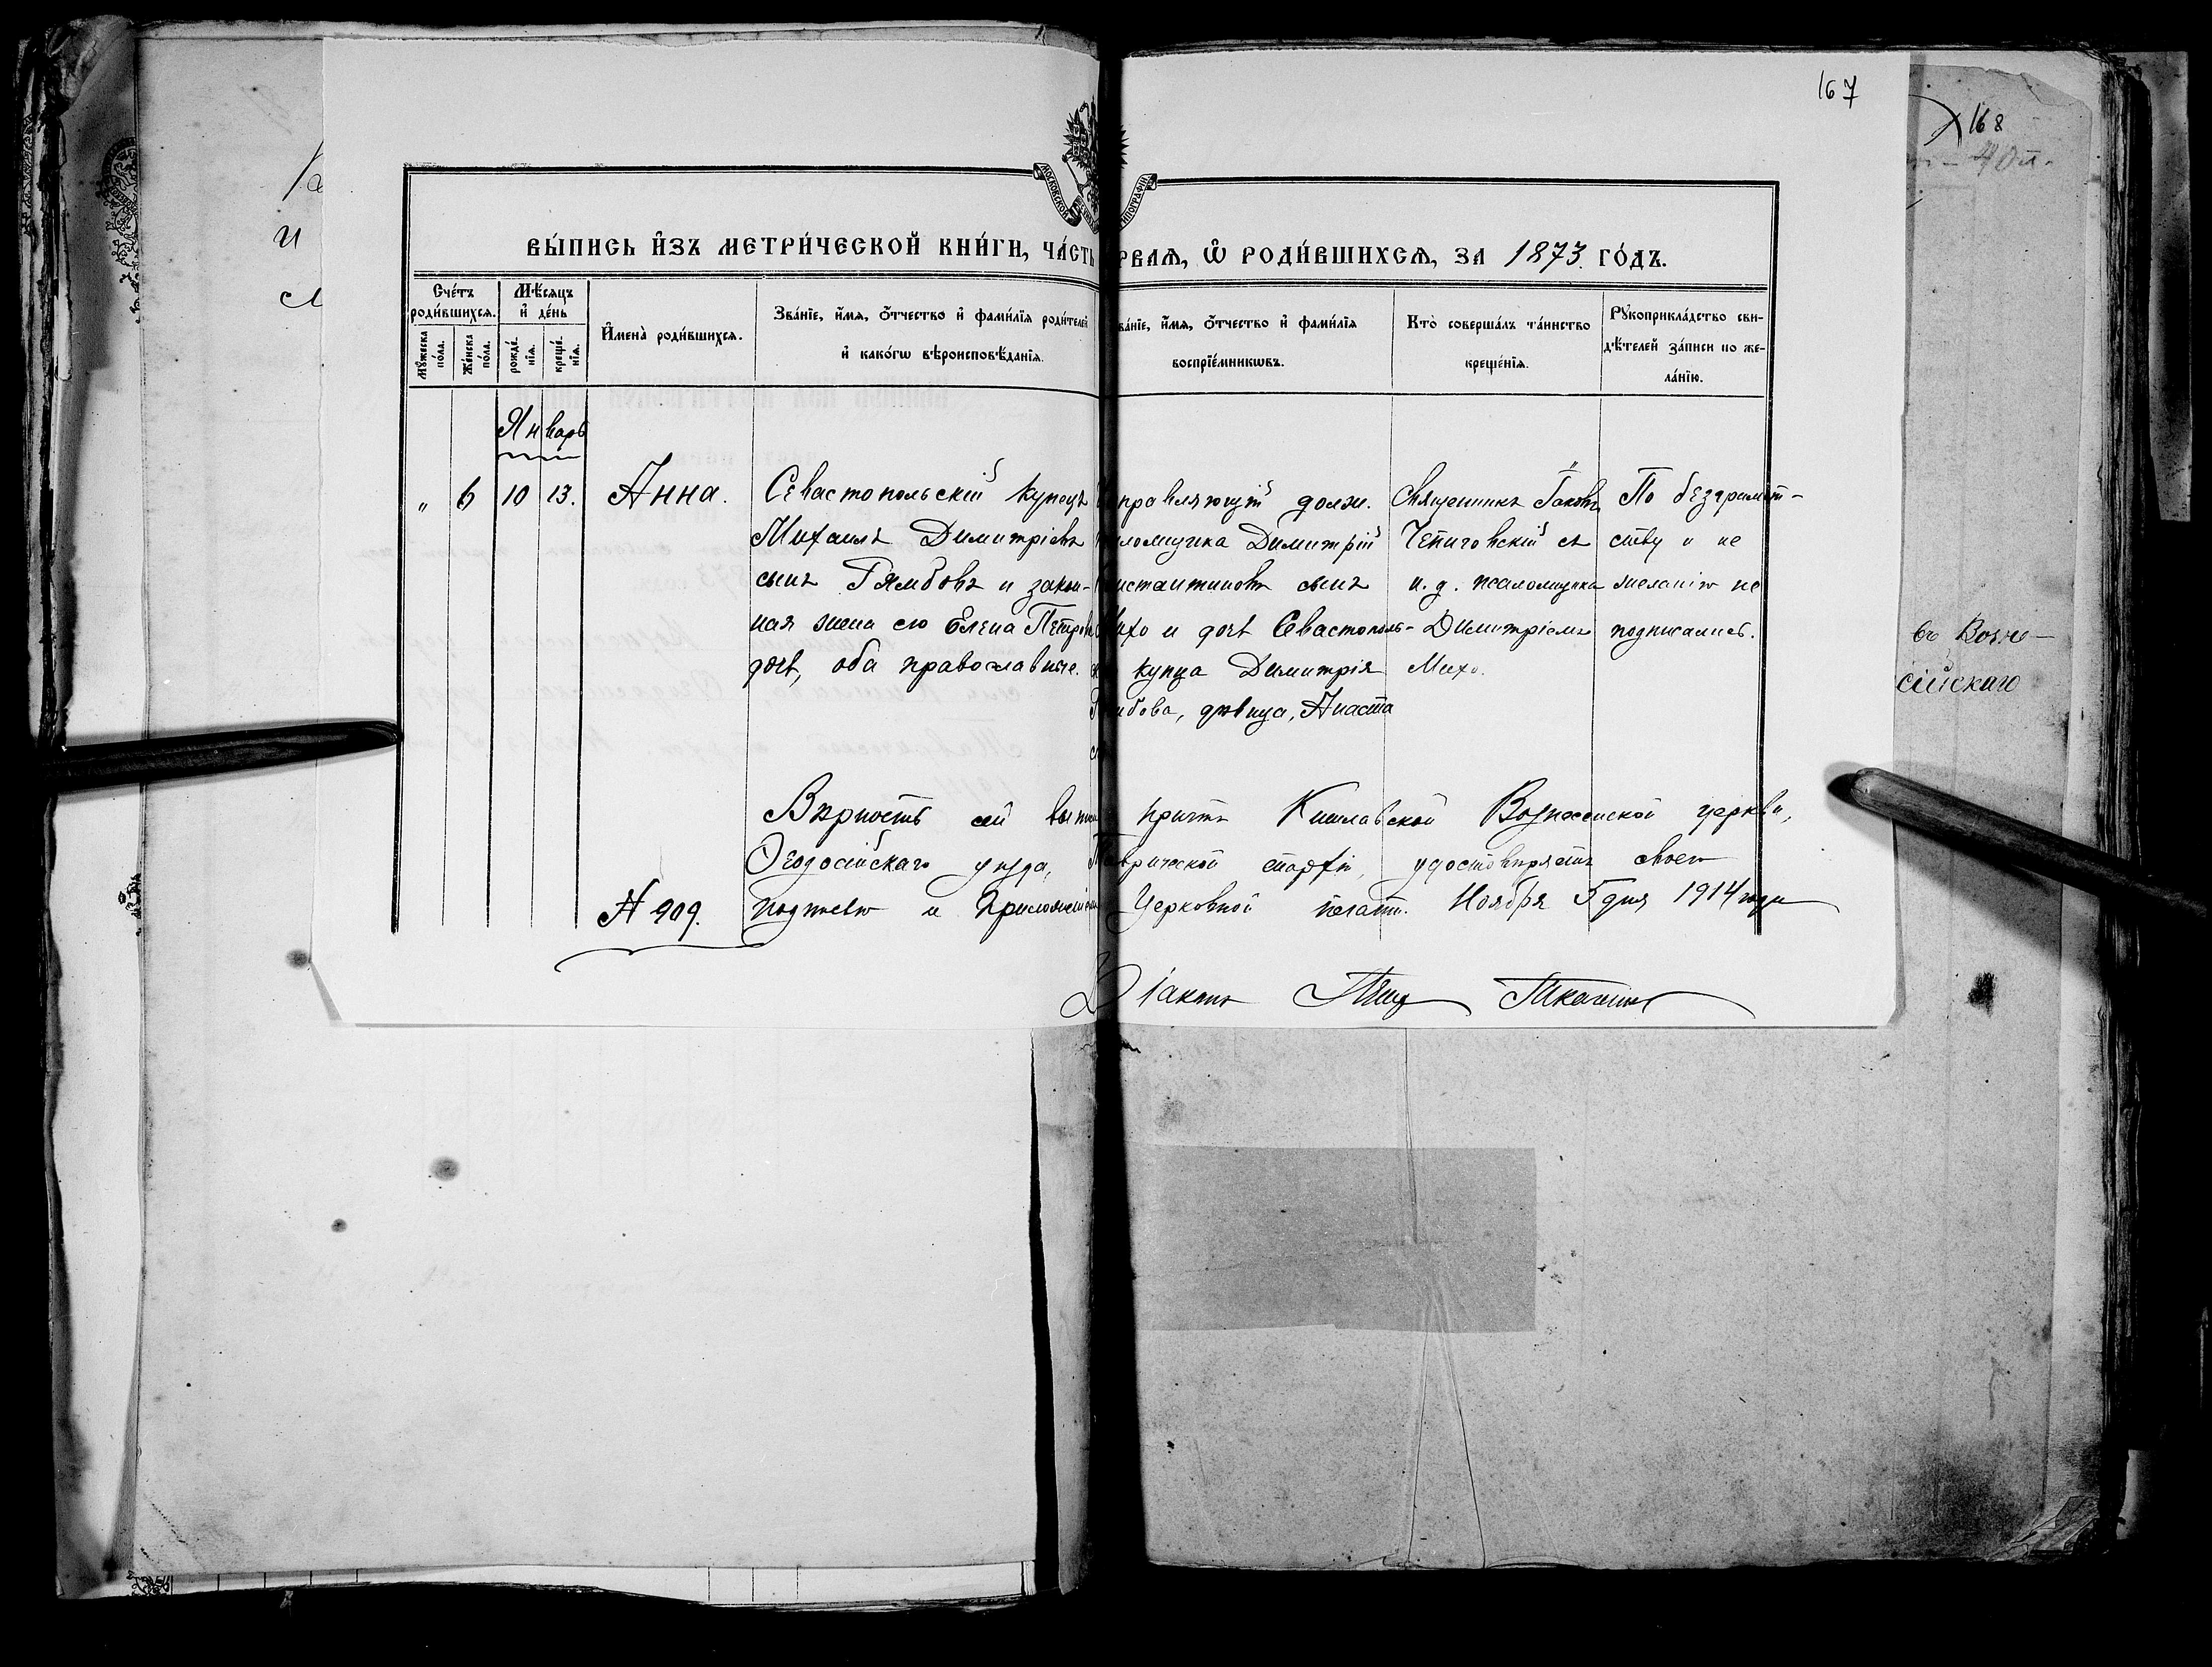 167
168
МОСКОВСКОЙ
ТИПОГРАФІИ
ВЫ́ПИСЬ И҆ЗЪ МЕТРИ́ЧЕСКОЙ КНИ́ГИ, ЧА́СТЬ РВАѦ, Ѡ҆ РОДИ́ВШИХСѦ, ЗА 1873. ГО́ДЪ.
Сче́тъ роди́вшихсѧ.
Мѣ́сѧцъ и҆ де́нь
Мꙋ́жеска по́ла.
Же́нска по́ла.
рожде́нїѧ.
креще́нїѧ.
И҆мена̀ роди́вшихсѧ.
Зва́нїе, и҆́мѧ, ѻ҆́тчество и҆ фами́лїѧ роди́телей
и҆ како́гѡ вѣроисповѣ́данїѧ.
ва́нїе, и҆́мѧ, ѻ҆́тчество и҆ фами́лїѧ
воспрїе́мникѡвъ.
Кто̀ соверша́лъ та́инство
креще́нїѧ.
Рꙋкоприкла́дство сви-
дѣ́телей за́писи по же-
ла́нїю.
Январь
" 6 10 13. Анна.
Севастопольскій купецъ
Михаилъ Димитріевъ
сынъ Гямбовъ и закон-
ная жена его Елена Петрова
дочь, оба православные.
правляющій долж.
ломщика Димитрій
стантиновъ сынъ
Михо и дочь Севастополь-
купца Димитрія
бова, дѣвица, Анаста
Священникъ Іаковъ
Чепиговскій съ
и. д. псаломщика
Димитріемъ
Михо.
По безграмот-
ству и не
желанію не
подписались.
Вѣрность сей выписи причтъ Кишлавской Вознесенской церкви,
Ѳеодосійскаго уѣзда, Таврической епархіи, удостовѣряетъ своею
N 909. подписью и приложеніемъ Церковной печати. Ноября 5 дня 1914 года
Діаконъ Ткаченко
въ Возне-
сійскаго